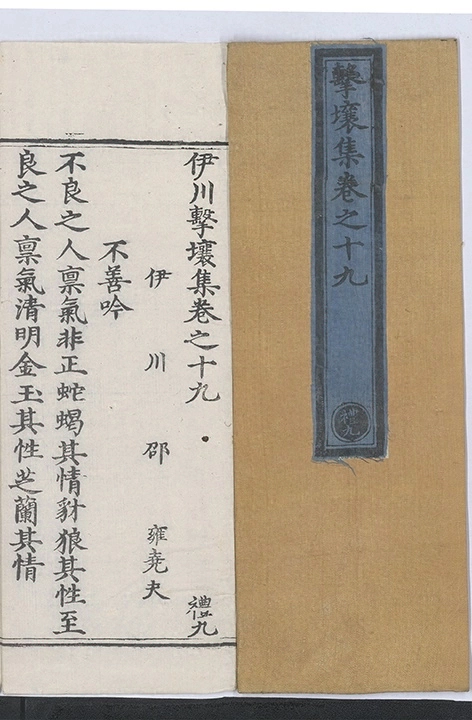 擊壤集卷之十九
禮九
伊川擊壤集卷之十九 禮九
伊川邵雍堯夫
不善吟
不良之人禀氣非正蛇蝎其情豺狼其性至
良之人禀氣清明金玉其性芝蘭其情